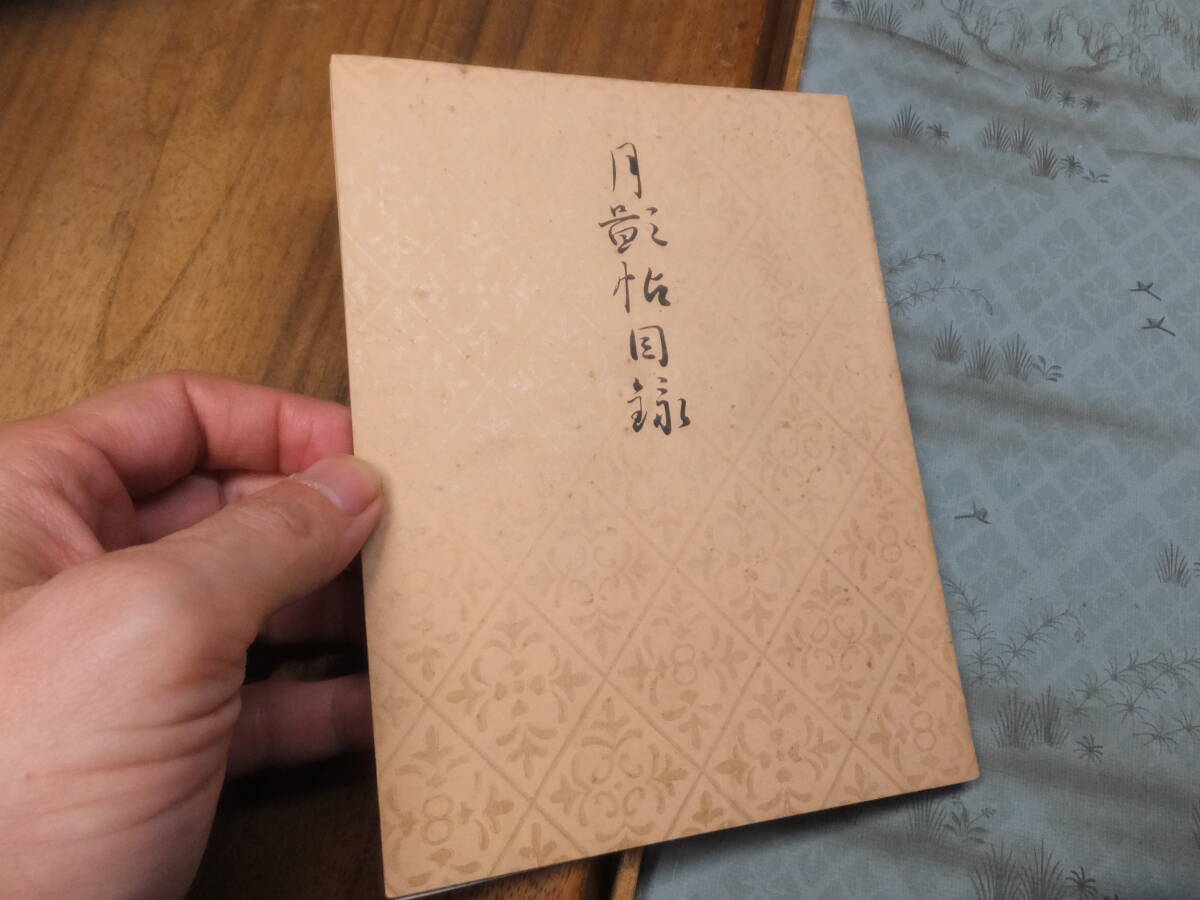 月影帖目録